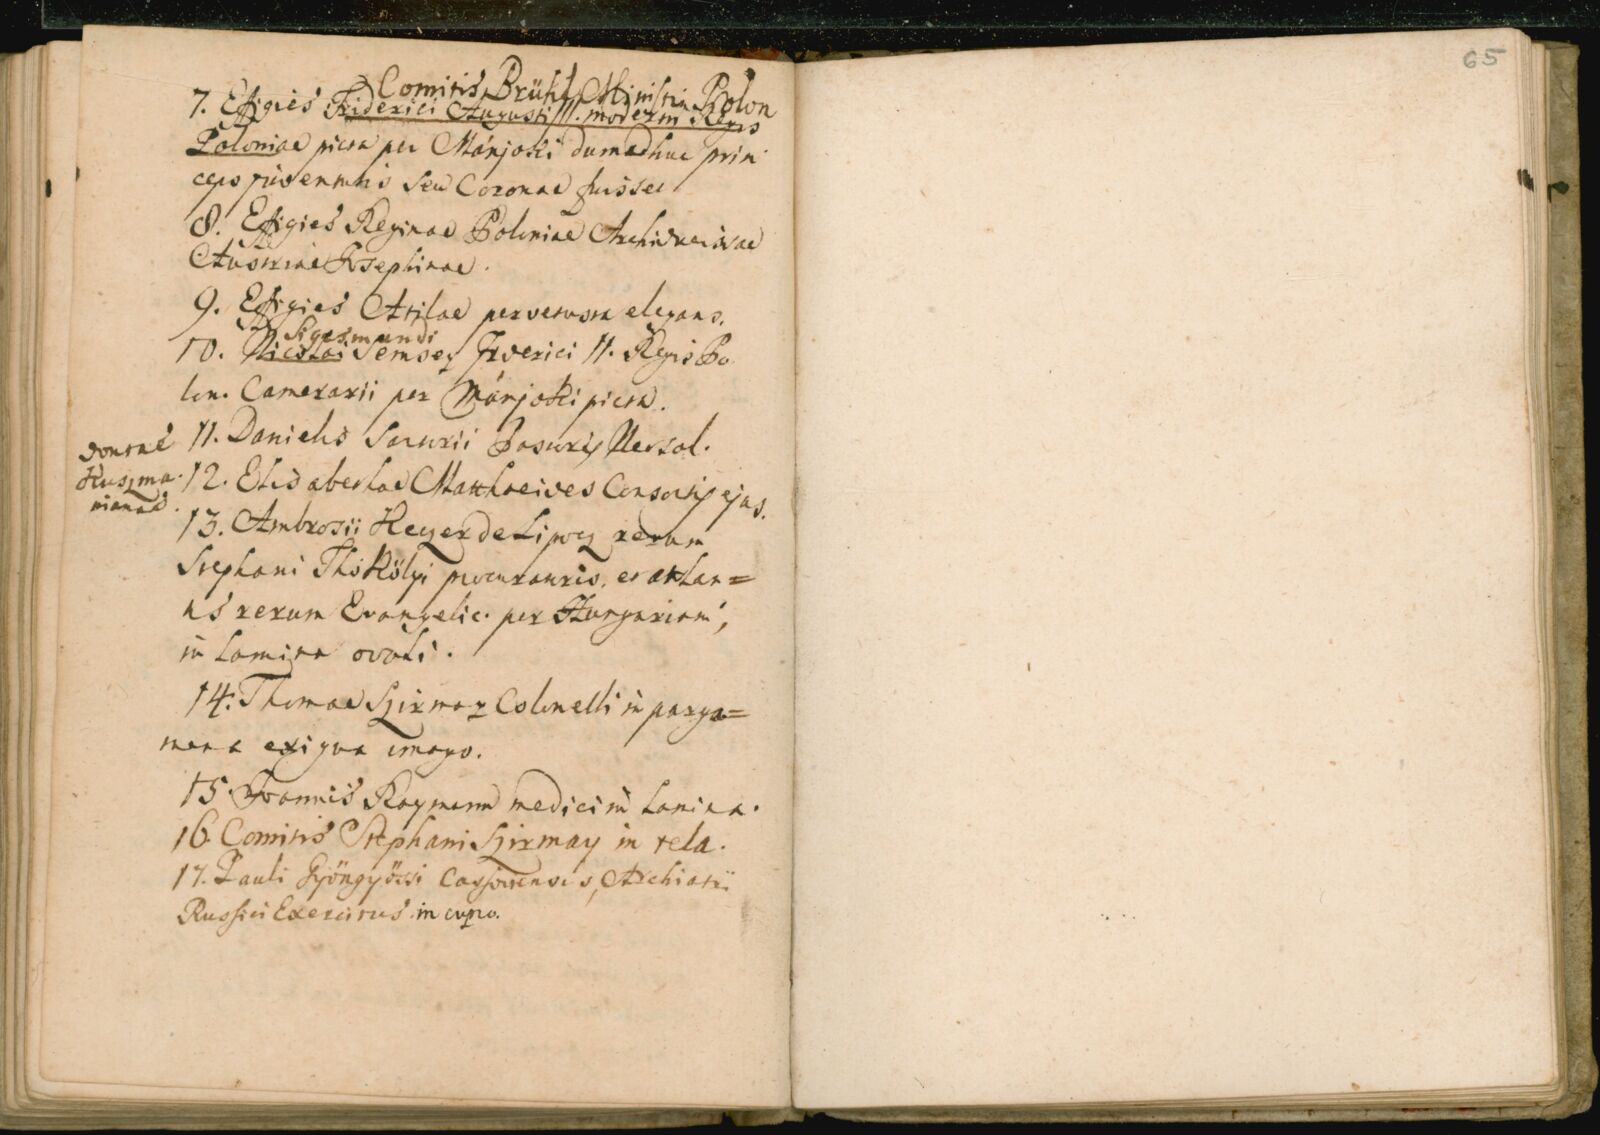 65
Comitis Brühl Ministri Polon
7. Effigies Friderici Augusti III. moderni Regis
Poloniae picta per Mányoki dum adhuc prin
ceps juventutis seu Coronae fuisset
8. Effigies Reginae Poloniae Archiducissae
Austriae Josephinae.
9. Effigies Atilae pervetusta elegans.
Sigismundi
10. Nicolai Semsey Friderici II. Regis Po
lon. Camerarii per Mányoki picta.
11. Danielis Sartorii Pastoris Neosol.
donatae
Huszma
nianae.
12. Elisabethae Matthaeides Consortis ejus.
13. Ambrosii Keczer de Lipocz rerum
Stephani Thököly procuratoris, et
rerum Evangelic. per Hungariam,
in lamina ovali.
14. Thomae Szirmay Colonelli in perga=
mena exigua imago.
15. Joannis Raymann medici in lamina.
16. Comitis Stephani Szirmay in tela.
17. Pauli Gyöngyössi Cassoviensis, Archiatri
Russici Exercitus in cupro.